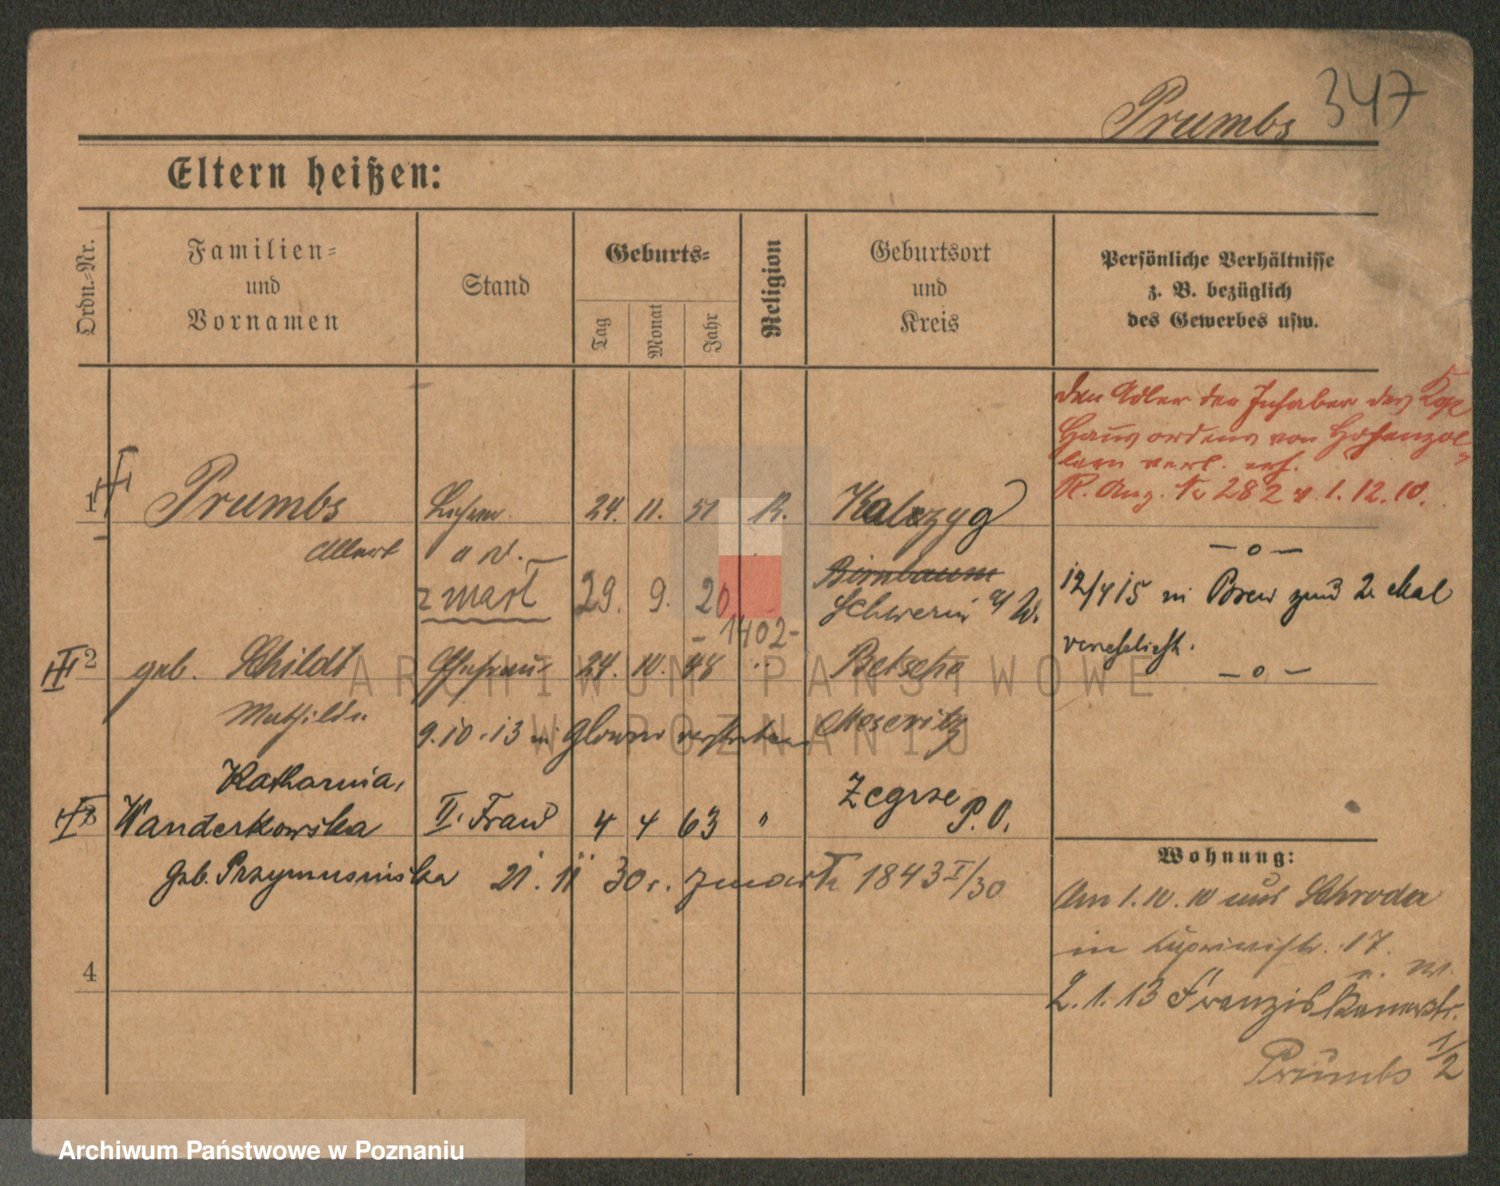 Prumbs 347
Eltern heißen:
Ordn.-Nr.
Familien-
und
Vornamen
Stand
Geburts-
Tag
Monat
Jahr
Religion
Geburtsort
und
Kreis
Persönliche Verhältnisse
z. B. bezüglich
des Gewerbes usw.
den Adler der Inhaber des Kgl
Haus ordens von Hohenzol-
lern verl. erh.
R. Anz. № 282 v. 1.12.10.
1 Prumbs Lehrer 24. 11. 51 K.
Albert a. D.
zmarł 29. 9. 20
-1402-
Birnbaum
Schwerin a/W.
— o —
12/4 15 in Posen zum 2. Mal
verehelicht.
— o —
2 geb. Schildt Ehefrau 24. 10. 48 "
Betsche
Mathilde
9.10.13 in verstorben
Meseritz
Katharina,
3 Wanderkowska II. Frau 4 4 63 "
Zegrze P.O.
geb. Przymusinska 21. 11 30 r. zmarła 1843 I/30
4
Wohnung:
Am 1.10.10 aus Schroda
in 17.
2.1.13 Franziskanerstr.
1/2
Prumbs
ARCHIWUM PAŃSTWOWE
W POZNANIU
Archiwum Państwowe w Poznaniu